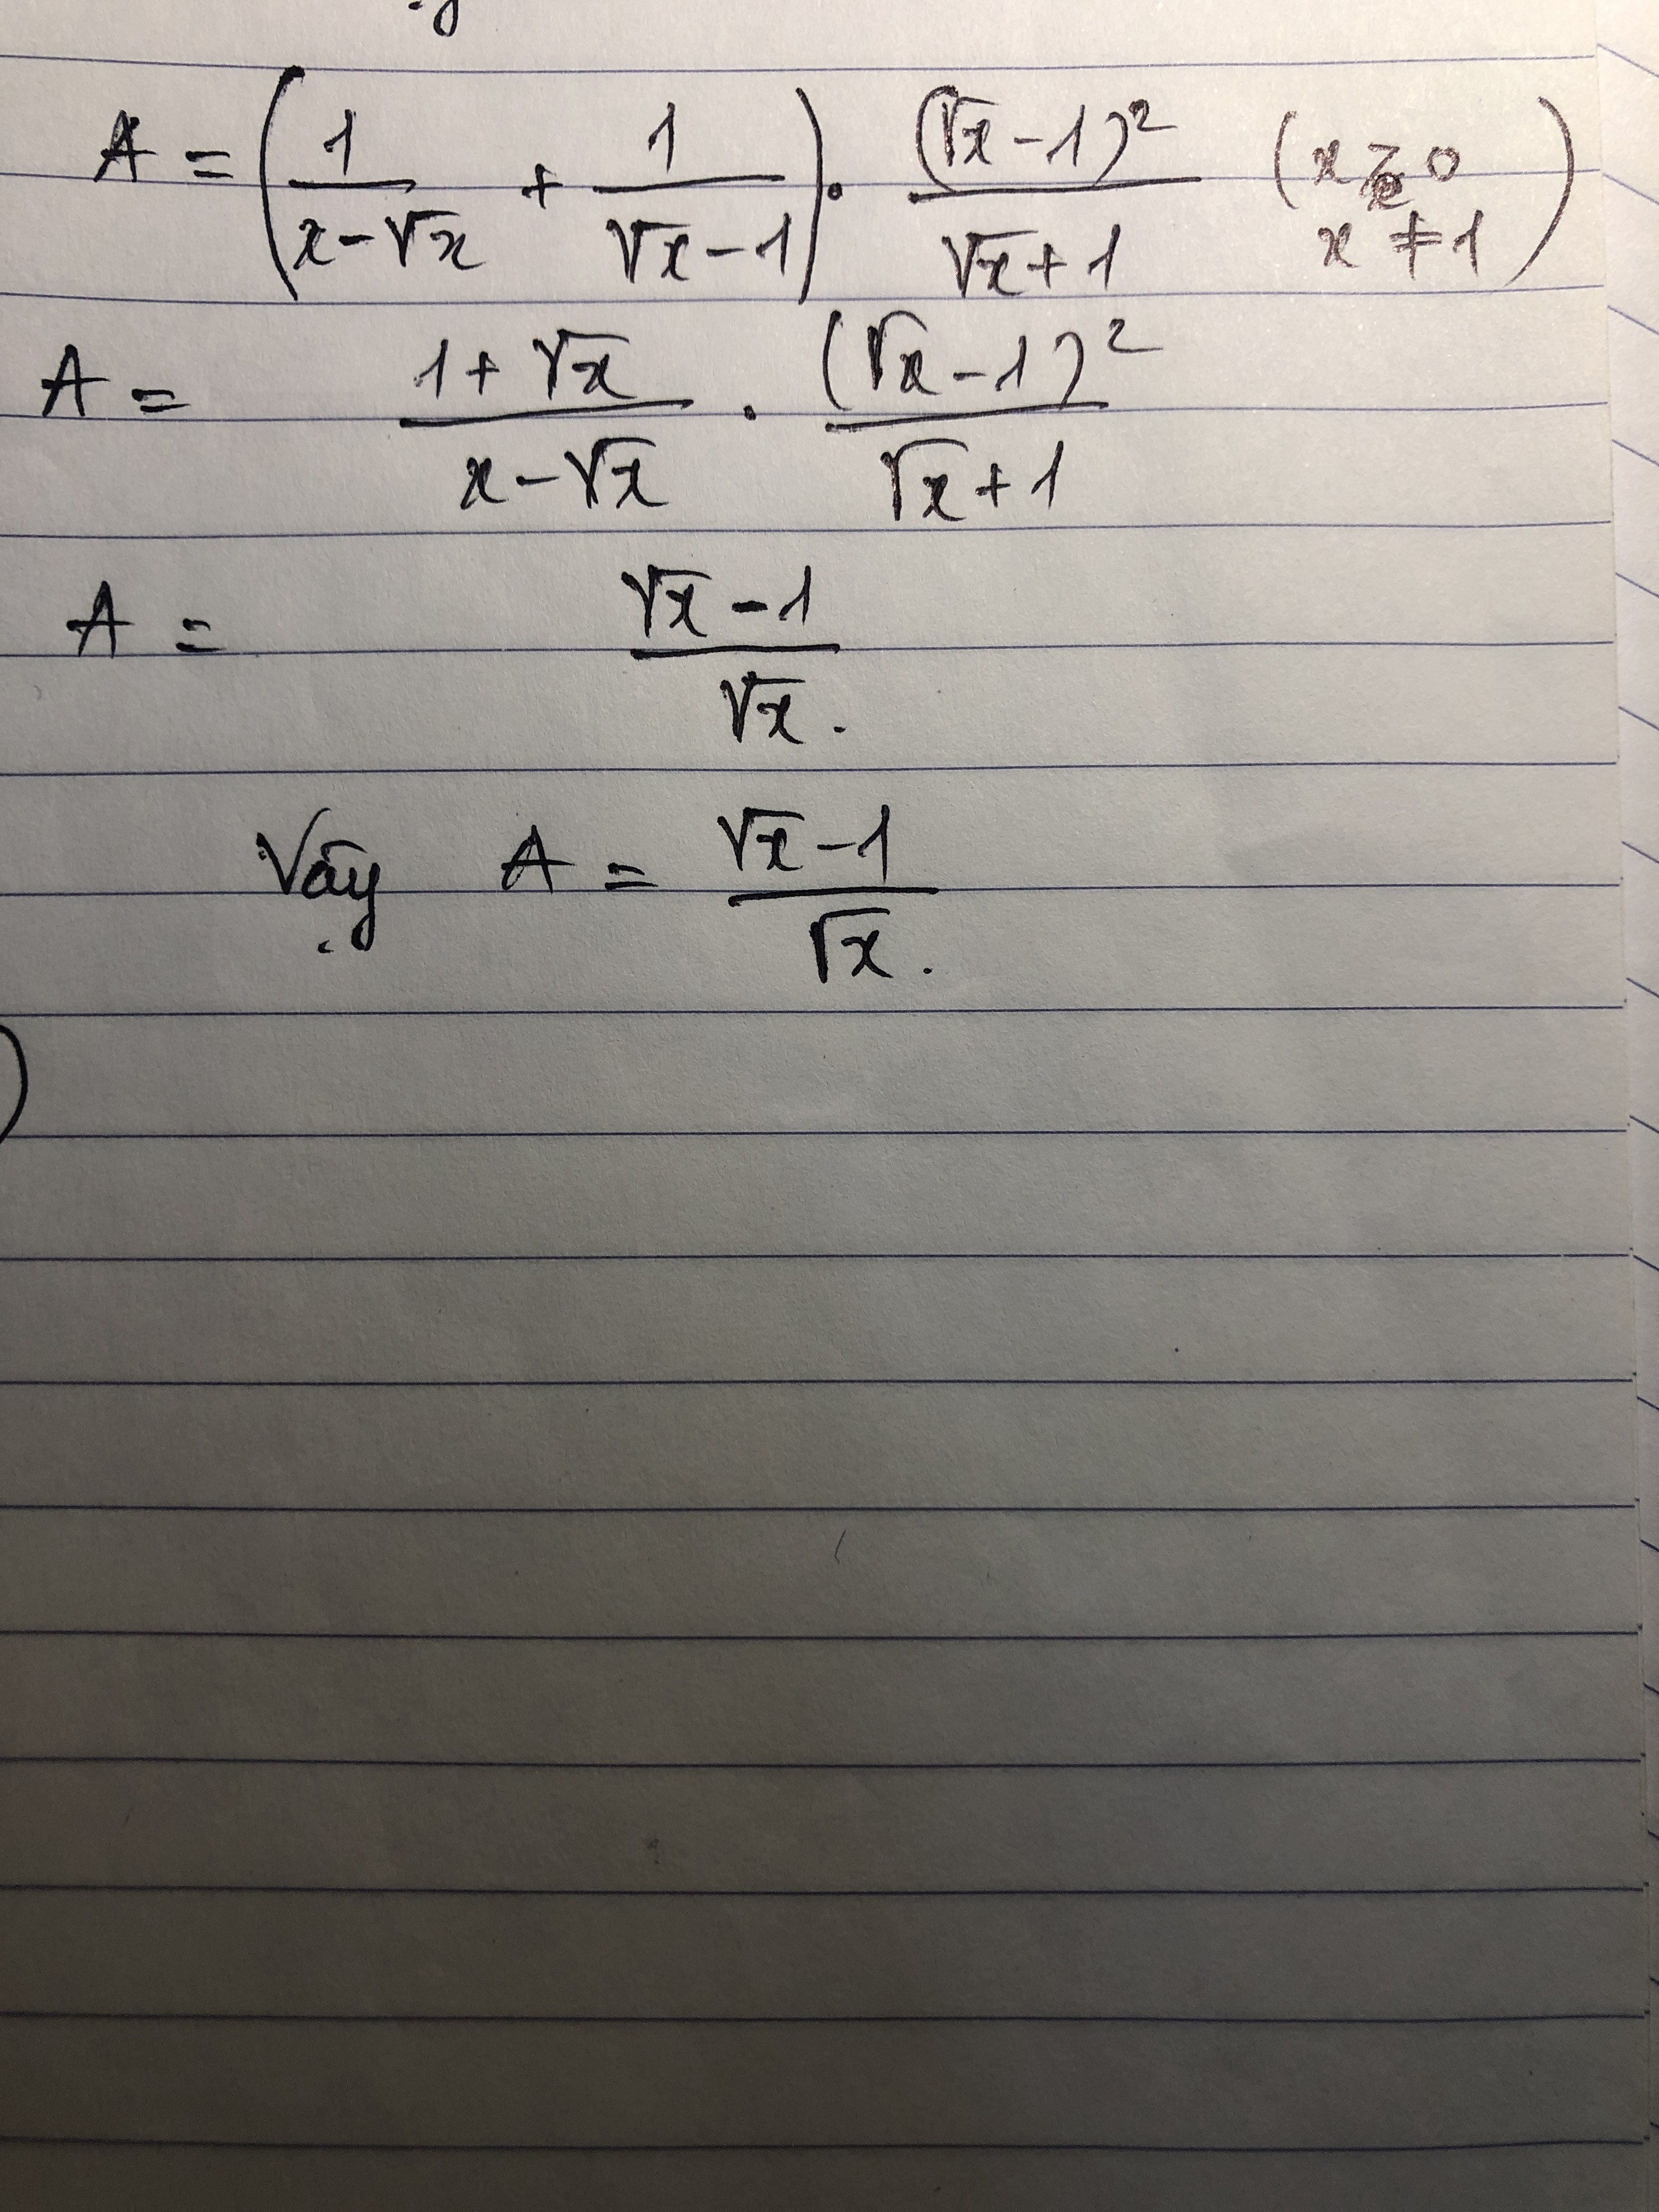 A = (1/(x-√x) + 1/(√x-1)) . (√x-1)²/(√x+1) (x ≥ 0 x ≠ 1)
A = (1+√x)/(x-√x) . (√x-1)²/(√x+1)
A = (√x-1)/√x .
Vậy A = (√x-1)/√x .